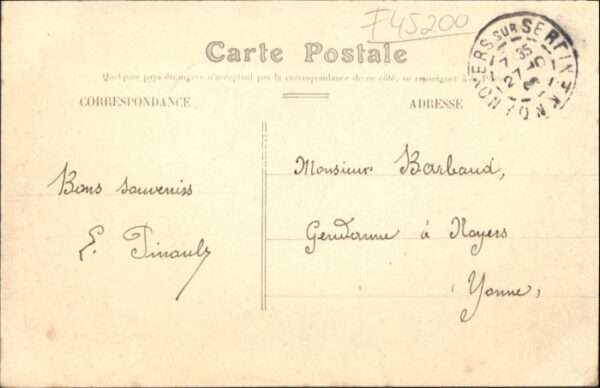 F45200
Carte Postale
Quelques pays étrangers n'acceptent pas la correspondance de ce côté, se renseigner à la
CORRESPONDANCE
ADRESSE
NOYERS SUR SEREIN
YONNE
7 35
27
Bons souvenirs
E. Pinault
Monsieur Barbaud,
Gendarme à Noyers
Yonne,